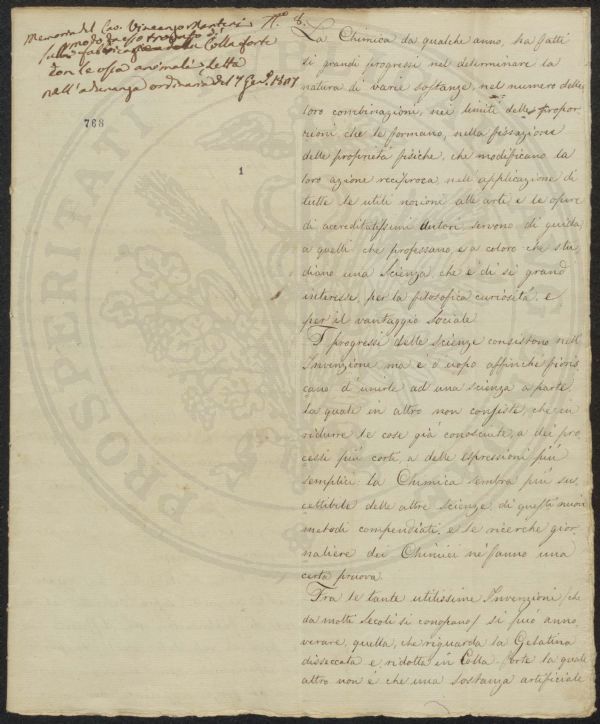 Memoria del Cav. Vincenzo Manteri N.° 8.
modo da esso trovato di
fabbricare colla forte
con le ossa animali, letta
nell'adunanza ordinaria del 7 Gen.° 1807
768
1
La Chimica da qualche anno, ha fatti
sì grandi progressi nel determinare la
natura di varie sostanze, nel numero delle
loro combinazioni, nei limiti delle propor
zioni, che le formano, nella fissazione
delle proprietà fisiche, che modificano la
loro azione reciproca, nell'applicazione di
tutte le utili nozioni alle arti, e le opere
di acreditatissimi Autori servono di guida
a quelli che professano, e a coloro che stu
diano una Scienza, che è di sì grand
interesse, per la filosofica curiosità, e
per il vantaggio sociale.
I progressi delle Scienze consistono nell'
Invenzione, ma è d'uopo affinchè fioris
cano d'unirle ad una scienza a parte
la quale in altro non consiste, che in
ridurre le cose già conosciute, a dei pro
cessi più corti, a delle espressioni più
semplici: la Chimica sempre più su
cettibile delle altre Scienze, di questi nuovi
metodi compendiati, e le ricerche gior
naliere dei Chimici nè fanno una
certa pruova.
Fra le tante utilissime Invenzioni (che
da molti Secoli si conoscano) si può anno
verare, quella, che riguarda la Gelatina
disseccata e ridotta in Colla-forte la quale
altro non è che una sostanza artificiale
PROSPERITATI